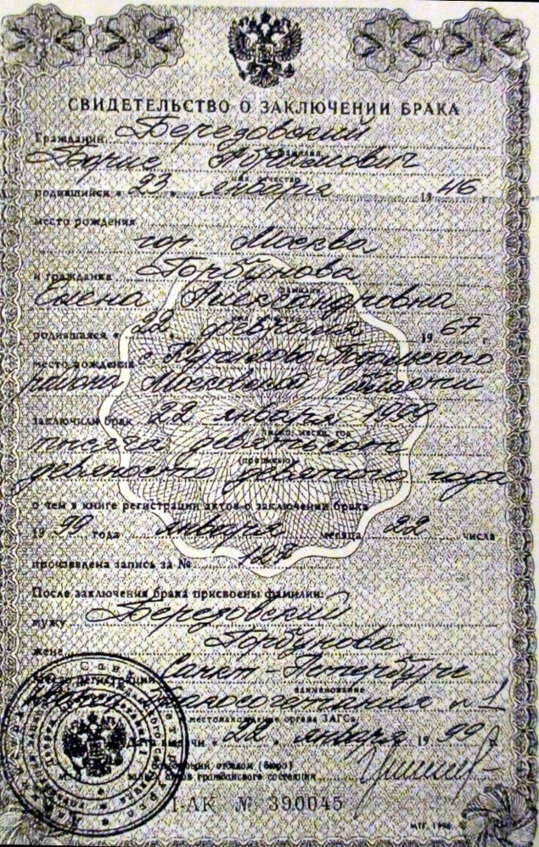 СВИДЕТЕЛЬСТВО О ЗАКЛЮЧЕНИИ БРАКА
Гражданин Березовский
Борис Абрамович
родившийся « 23 » января 1946 г.
место рождения
гор. Москва
и гражданка Горбунова
Елена Александровна
родившаяся « 22 февраля 1967
место рождения с. Курилово Подольского
района Московской области
заключили брак 22 января 1999
число, месяц, год
тысяча девятьсот
(прописью)
девяносто девятого года
о чем в книге регистрации актов о заключении брака
1999 года января месяца 22 числа
произведена запись за №
После заключения брака присвоены фамилии:
мужу Березовский
жене Горбунова
Место регистрации Санкт-Петербург
наименование
бракосочетания № 1
и местонахождение органа ЗАГСа
Дата выдачи « 22 января 1999 г.
Заведующий отделом (бюро)
записи актов гражданского состояния
I-АК № 390045
МТГ, 1996